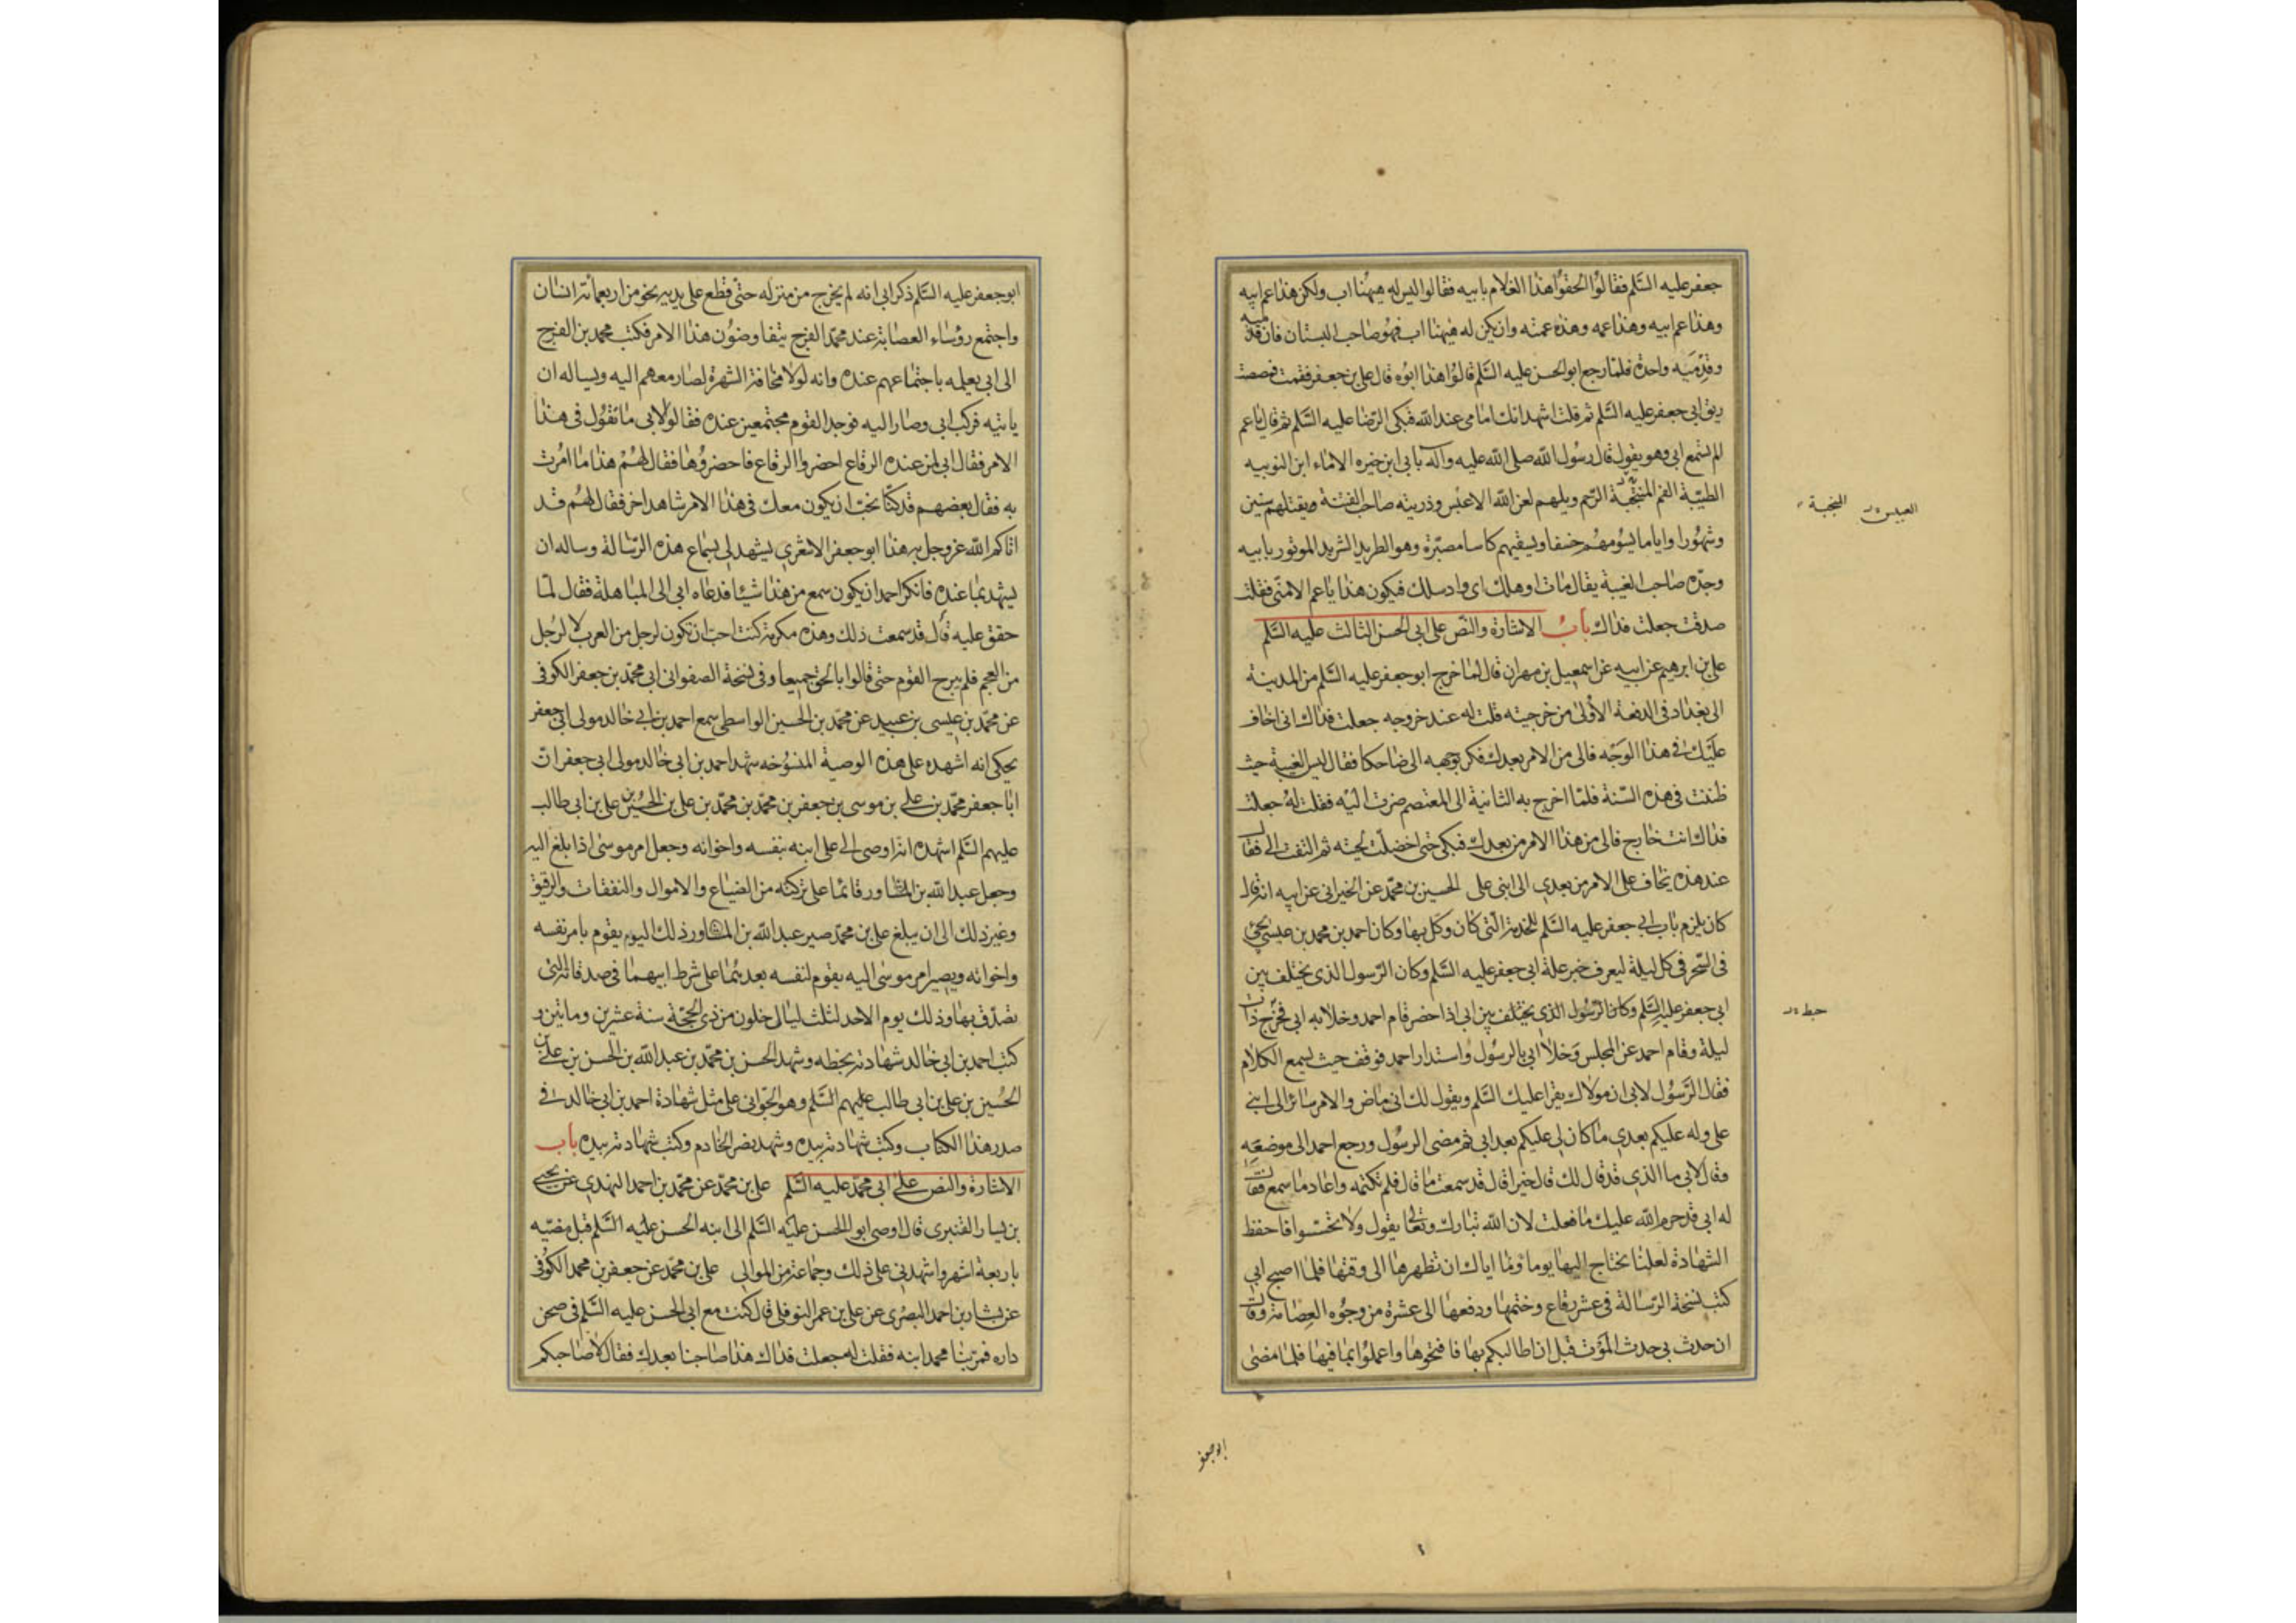 جعفر عليه السلم فقالوا الحقوا هذا الغلام بابيه فقالوا ليس له ههنا اب ولكن هذا عم ابيه
وهذا عم ابيه وهذا عمه وهذه عمته وان يكن له ههنا اب فهو صاحب البستان فان قدميه
وقدميه واحدة فلما رجع ابو الحسن عليه السلم قالوا هذا ابوه قال علي بن جعفر فقمت فمصصت
ريق ابي جعفر عليه السلم ثم قلت اشهد انك امامي عند الله فبكى الرضا عليه السلم ثم قال يا عم
الم تسمع ابي وهو يقول قال رسول الله صلى الله عليه واله بابي ابن خيره الاماء ابن النوبيه
الطيبة الفم المنتجبة الرحم ويلهم لعن الله الاعبس وذريته صاحب الفتنة ويقتلهم سنين
العبيس المنجبة
وشهورا واياما يسومهم خسفا ويسقيهم كاسا مصبرة وهو الطريد الشريد الموتور بابيه
وجده صاحب الغيبة يقال مات او هلك اي واد سلك فيكون هذا يا عم الا مني فقلت
صدقت جعلت فداك باب الاشارة والنص على ابي الحسن الثالث عليه السلم
علي بن ابرهيم عن ابيه عن اسمعيل بن مهران قال لما خرج ابو جعفر عليه السلم من المدينة
الى بغداد في الدفعة الأولى من خرجيته قلت له عند خروجه جعلت فداك اني اخاف
عليك في هذا الوجه فالى من الامر بعدك فكر بوجهه الي ضاحكا فقال ليس الغيبة حيث
ظننت في هذه السنة فلما اخرج به الثانية الى المعتصم صرت اليه فقلت له جعلت
فداك انت خارج فالى من هذا الامر من بعدك فبكى حتى اخضلت لحيته ثم التفت الي فقال
عند هذه يخاف علي الامر من بعدي الى ابني علي الحسين بن محمد عن الخيراني عن ابيه انه قال
كان يلزم باب ابي جعفر عليه السلم للخدمة التي كان وكل بها وكان احمد بن محمد بن عيسى يجئ
في السحر في كل ليلة ليعرف خبر علة ابي جعفر عليه السلم وكان الرسول الذي يختلف بين
ابي جعفر عليه السلم وكان الرسول الذي يختلف بين ابي اذا حضر قام احمد وخلا به ابي فخرج ذات
ليلة وقام احمد عن المجلس وخلا ابي بالرسول واستدار احمد فوقف حيث يسمع الكلام
فقال الرسول لابي ان مولاك يقرا عليك السلم ويقول لك اني ماض والامر صائر الى ابني
علي وله عليكم بعدي ما كان لي عليكم بعد ابي ثم مضى الرسول ورجع احمد الى موضعه
وقال لابي ما الذي قد قال لك قال خيرا قال قد سمعت ما قال فلم تكتمه واعاد ما سمع فقال
له ابي قد حرم الله عليك ما فعلت لان الله تبارك وتعالى يقول ولا تجسسوا فاحفظ
الشهادة لعلنا نحتاج اليها يوما وما اياك ان تظهرها الى وقتها فلما اصبح ابي
كتب نسخة الرسالة في عشر رقاع وختمها ودفعها الى عشرة من وجوه العصابة وقال
ان حدث بي حدث الموت قبل ان اطالبكم بها فافتحوها واعملوا بما فيها فلما مضى
ابو جعفر
ابو جعفر عليه السلم ذكر ابي انه لم يخرج من منزله حتى قطع على يديه نحو من اربعمائة انسان
واجتمع رؤساء العصابة عند محمد الفرج يتفاوضون هذا الامر فكتب محمد بن الفرج
الى ابي يعلمه باجتماعهم عنده وانه لولا مخافة الشهرة لصار معهم اليه ويساله ان
ياتيه فركب ابي وصار اليه فوجد القوم مجتمعين عنده فقالوا لابي ما تقول في هذا
الامر فقال ابي لمن عنده الرقاع احضروا الرقاع فاحضروها فقال لهم هذا ما امرت
به فقال بعضهم قد كنا نحب ان يكون معك في هذا الامر شاهد اخر فقال لهم قد
اتاكم الله عز وجل به هذا ابو جعفر الاشعري يشهد لي بسماع هذه الرسالة وساله ان
يشهد بما عنده فانكر احمد ان يكون سمع من هذا شيئا فدعاه ابي الى المباهلة فقال لما
حقق عليه قال قد سمعت ذلك وهذه مكرمة كنت احب ان تكون لرجل من العرب لا لرجل
من العجم فلم يبرح القوم حتى قالوا بالحق جميعا وفي نسخة الصفواني ابي محمد بن جعفر الكوفي
عن محمد بن عيسى بن عبيد عن محمد بن الحسين الواسطي سمع احمد بن ابي خالد مولى ابي جعفر
يحكي انه اشهده على هذه الوصية المنسوخه شهد احمد بن ابي خالد مولى ابي جعفر ان
ابا جعفر محمد بن علي بن موسى بن جعفر بن محمد بن محمد بن علي بن الحسين بن علي بن ابي طالب
عليهم السلم اشهده انه اوصى الى علي ابنه بنفسه واخوانه وجعل امر موسى اذا بلغ اليه
وجعل عبد الله بن المساور قائما على تركته من الضياع والاموال والنفقات والرقيق
وغير ذلك الى ان يبلغ علي بن محمد صير عبد الله بن المساور ذلك اليوم يقوم بامر نفسه
واخوانه ويصير امر موسى اليه يقوم لنفسه بعدهما على شرط ابيهما في صدقاته التي
تصدق بها وذلك يوم الاحد لثلث ليال خلون من ذي الحجة سنة عشرين وماتين و
كتب احمد بن ابي خالد شهادته بخطه وشهد الحسن بن محمد بن عبد الله بن الحسن بن علي بن
الحسين بن علي بن ابي طالب عليهم السلم وهو الجواني على مثل شهادة احمد بن ابي خالد في
صدر هذا الكتاب وكتب شهادته بيده وشهد نصر الخادم وكتب شهادته بيده باب
الاشارة والنص على ابي محمد عليه السلم علي بن محمد عن محمد بن احمد النهدي عن يحيى
بن يسار القنبري قال اوصى ابو الحسن عليه السلم الى ابنه الحسن عليه السلم قبل مضيه
باربعة اشهر واشهدني على ذلك وجماعة من الموالي علي بن محمد عن جعفر بن محمد الكوفي
عن بشار بن احمد البصري عن علي بن عمر النوفلي قال كنت مع ابي الحسن عليه السلم في صحن
داره فمر بنا محمد ابنه فقلت له جعلت فداك هذا صاحبنا بعدك فقال لا صاحبكم